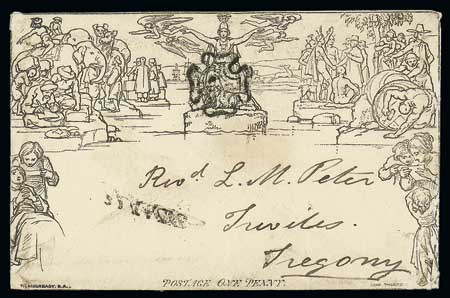 Revd L. M. Peter
Treviles.
Tregony
W. MULREADY, R.A.
POSTAGE ONE PENNY.
JOHN THOMPSON